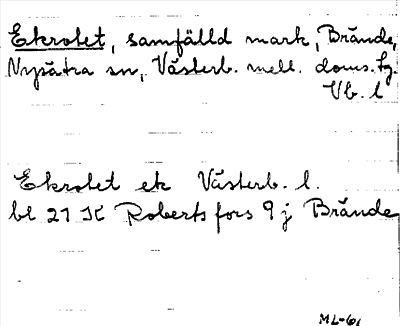 Ekrotet, samfälld mark, Brände,
Nysätra sn, Västerb. mell. doms. fg.
Vb. l
Ekrotet ek Västerb. l.
bl 21 K Robertsfors 9 j Brände
ML-61